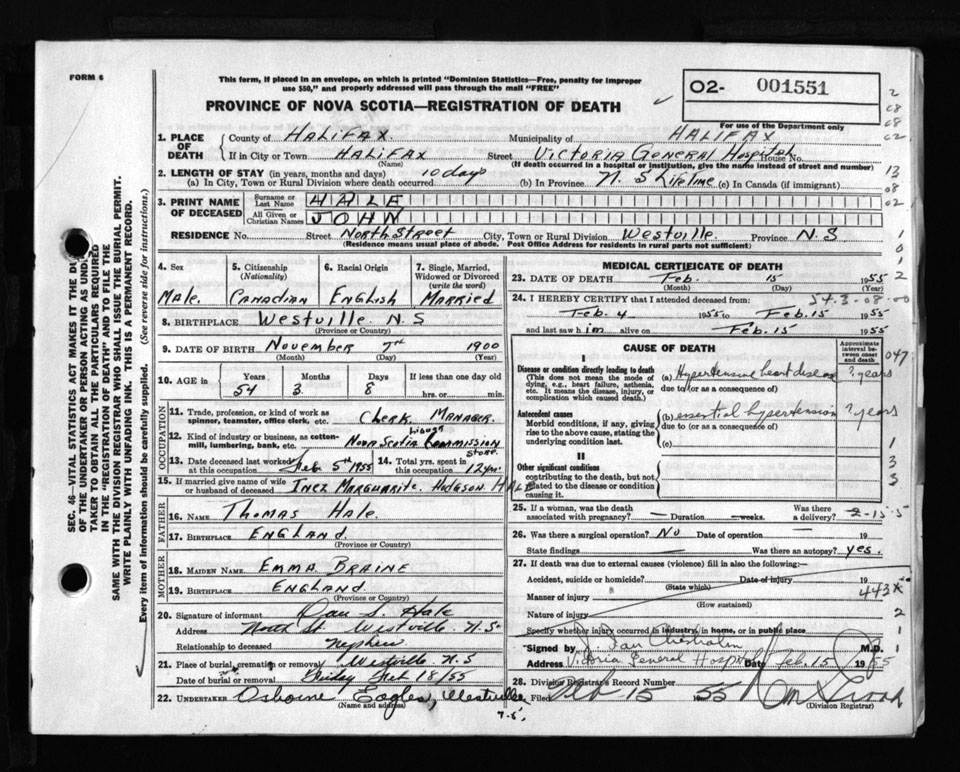 FORM 6
This form, if placed in an envelope, on which is printed "Dominion Statistics—Free, penalty for improper
use $50," and properly addressed will pass through the mail "FREE"
PROVINCE OF NOVA SCOTIA—REGISTRATION OF DEATH
02- 001551
For use of the Department only
1. PLACE OF DEATH County of HALIFAX. Municipality of HALIFAX
If in City or Town HALIFAX Street Victoria General Hospital House No.
(Name) (If death occurred in a hospital or institution, give the name instead of street and number)
2. LENGTH OF STAY (in years, months and days) 10 days
(a) In City, Town or Rural Division where death occurred (b) In Province N. S Lifetime (c) In Canada (if immigrant)
3. PRINT NAME OF DECEASED Surname or Last Name HALE
All Given or Christian Names JOHN
RESIDENCE No. Street North Street City, Town or Rural Division Westville. Province N.S
(Residence means usual place of abode. Post Office Address for residents in rural parts not sufficient)
4. Sex Male.
5. Citizenship (Nationality) Canadian
6. Racial Origin English
7. Single, Married, Widowed or Divorced (write the word) Married
8. BIRTHPLACE Westville N.S
(Province or Country)
9. DATE OF BIRTH November 7th 1900
(Month) (Day) (Year)
10. AGE in Years Months Days If less than one day old
54 3 8 hrs. or min.
OCCUPATION
11. Trade, profession, or kind of work as spinner, teamster, office clerk, etc. Clerk Manager.
12. Kind of industry or business, as cotton-mill, lumbering, bank, etc. Nova Scotia Liquor Commission Store.
13. Date deceased last worked at this occupation Feb 5th 1955
14. Total yrs. spent in this occupation 12 yrs.
15. If married give name of wife or husband of deceased Inez Marguarite. Hodgson HALE
FATHER
16. NAME Thomas Hale.
17. BIRTHPLACE ENGLAND.
(Province or Country)
MOTHER
18. MAIDEN NAME EMMA BRAINE
19. BIRTHPLACE ENGLAND.
(Province or Country)
20. Signature of informant Dan S. Hale
Address North St. Westville. N.S.
Relationship to deceased Nephew
21. Place of burial, cremation or removal Westville N.S
Date of burial or removal Friday Feb 18/55
22. UNDERTAKER Osborne Eagles, Westville N.S.
(Name and address)
MEDICAL CERTIFICATE OF DEATH
23. DATE OF DEATH Feb. 15 1955
(Month) (Day) (Year)
24. I HEREBY CERTIFY that I attended deceased from: 54-3-08-00
Feb. 4 1955 to Feb. 15 1955
and last saw him alive on Feb. 15 1955
CAUSE OF DEATH
Approximate interval between onset and death
I
Disease or condition directly leading to death
(This does not mean the mode of dying, e.g., heart failure, asthenia, etc. It means the disease, injury, or complication which caused death.)
(a) Hypertensive heart disease ? years
due to (or as a consequence of)
Antecedent causes
Morbid conditions, if any, giving rise to the above cause, stating the underlying condition last.
(b) essential hypertension ? years
due to (or as a consequence of)
(c)
II
Other significant conditions
contributing to the death, but not related to the disease or condition causing it.
25. If a woman, was the death associated with pregnancy? — Duration — weeks. Was there a delivery? 2-15-5
26. Was there a surgical operation? No Date of operation — 19
State findings — Was there an autopsy? yes.
27. If death was due to external causes (violence) fill in also the following:—
Accident, suicide or homicide? Date of injury 19
(State which)
Manner of injury 443X
(How sustained)
Nature of injury
Specify whether injury occurred in industry, in home, or in public place
Signed by M.D.
Address Victoria General Hospital Date Feb. 15 1955
28. Division Registrar's Record Number
Filed Feb 15 1955
(Division Registrar)
SEC. 46—VITAL STATISTICS ACT MAKES IT THE DUTY
OF THE UNDERTAKER OR PERSON ACTING AS UNDER-
TAKER TO OBTAIN ALL THE PARTICULARS REQUIRED
IN THE "REGISTRATION OF DEATH" AND TO FILE THE
SAME WITH THE DIVISION REGISTRAR WHO SHALL ISSUE THE BURIAL PERMIT.
WRITE PLAINLY WITH UNFADING INK. THIS IS A PERMANENT RECORD.
Every item of information should be carefully supplied. (See reverse side for instructions.)
2
08
08
02
13
08
02
1
0
1
2
047
1
3
3
2
1
1